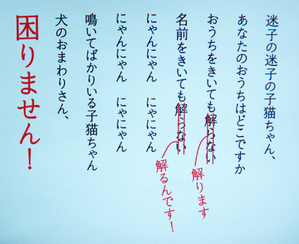 迷子の迷子の子猫ちゃん、
あなたのおうちはどこですか
おうちをきいても解らない
解ります
名前をきいても解らない
解るんです!
にゃんにゃん にゃにゃん
にゃんにゃん にゃにゃん
鳴いてばかりいる子猫ちゃん
犬のおまわりさん、
困りません!